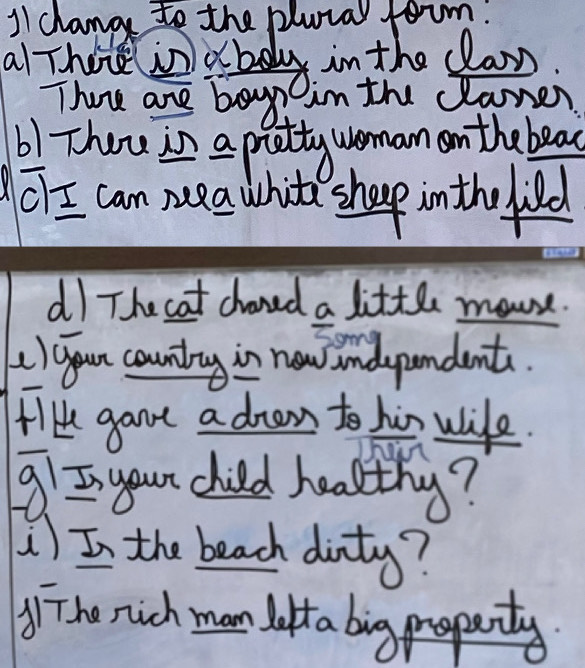 1) change to the plural form:
a) There is a boy in the class.
There are boys in the classes.
b) There is a pretty woman on the beac
c) I can see a white sheep in the fild
d) The cat chased a little mouse.
Some
e) your country is now independent.
f) He gave a dress to his wife.
Their
g) Is your child healthy?
i) Is the beach dirty?
j) The rich man left a big property.